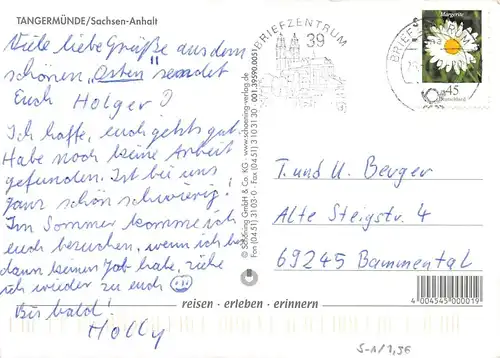 TANGERMÜNDE/Sachsen-Anhalt
Viele liebe Grüße aus dem
schönen "Osten" sendet
Euch Holger :)
Ich hoffe, euch gehts gut.
Habe noch keine Arbeit
gefunden. Ist bei uns
ganz schön schwierig!
Im Sommer komme ich
euch besuchen, wenn ich bis
dann keinen Job habe, ziehe
ich wieder zu euch
Bis bald!
Holly
© Schöning GmbH & Co. KG · www.schoening-verlag.de
Fon (0451) 31 03-0 · Fax (0451) 3 10 31 30 001.39590.0051
BRIEFZENTRUM
39
BRIEFZENTRUM
Margerite
45
Deutschland
T. und U. Berger
Alte Steigstr. 4
69245 Bammental
reisen · erleben · erinnern
4004545000019
S-A/1,36